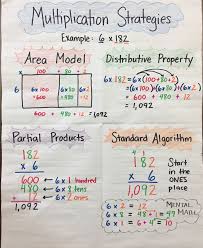 Multiplication Strategies
Example: 6 x 182
Area Model
x 100 + 80 + 2
6 6 x 100 6 x 80 6 x 2
= 600 + 480 + 12
1,092
Distributive Property
6 x 182 = 6 x (100 + 80 + 2)
= (6 x 100) + (6 x 80) + (6 x 2)
= 600 + 480 + 12
= 1,092
Partial Products
182
x 6
600 ← 6 x 1 hundred
480 ← 6 x 8 tens
+ 12 ← 6 x 2 ones
1,092
Standard Algorithm
4 1
182
x 6
1,092
Start
in the
ONES
place
6 x 2 = 12
6 x 8 = 48 + 1 = 49
6 x 1 = 6 + 4 = 10
MENTAL
MATH